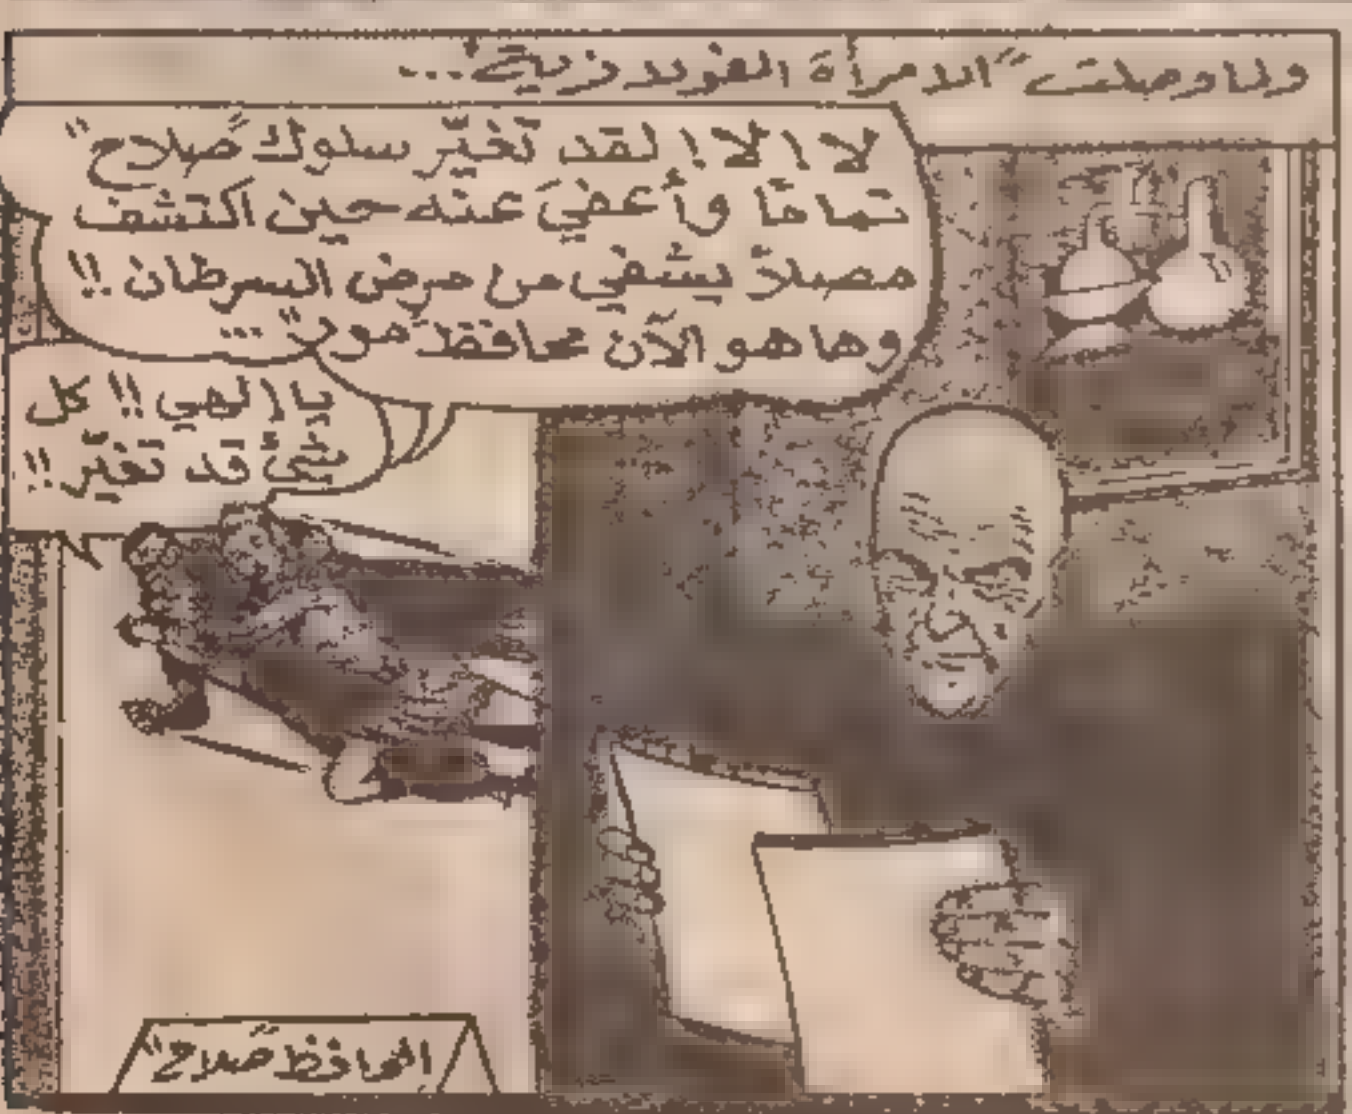 ولما وصلت "المرأة الفولاذية"...
لا! لا! لقد تغيّر سلوك "صلاح"
تمامًا وأعفيَ عنه حين اكتشف
مصلاً يشفي من مرض السرطان!!
وها هو الآن محافظ "مور"...
يا إلهي!! كل
شيءٍ قد تغيّر!!
المحافظ "صلاح"